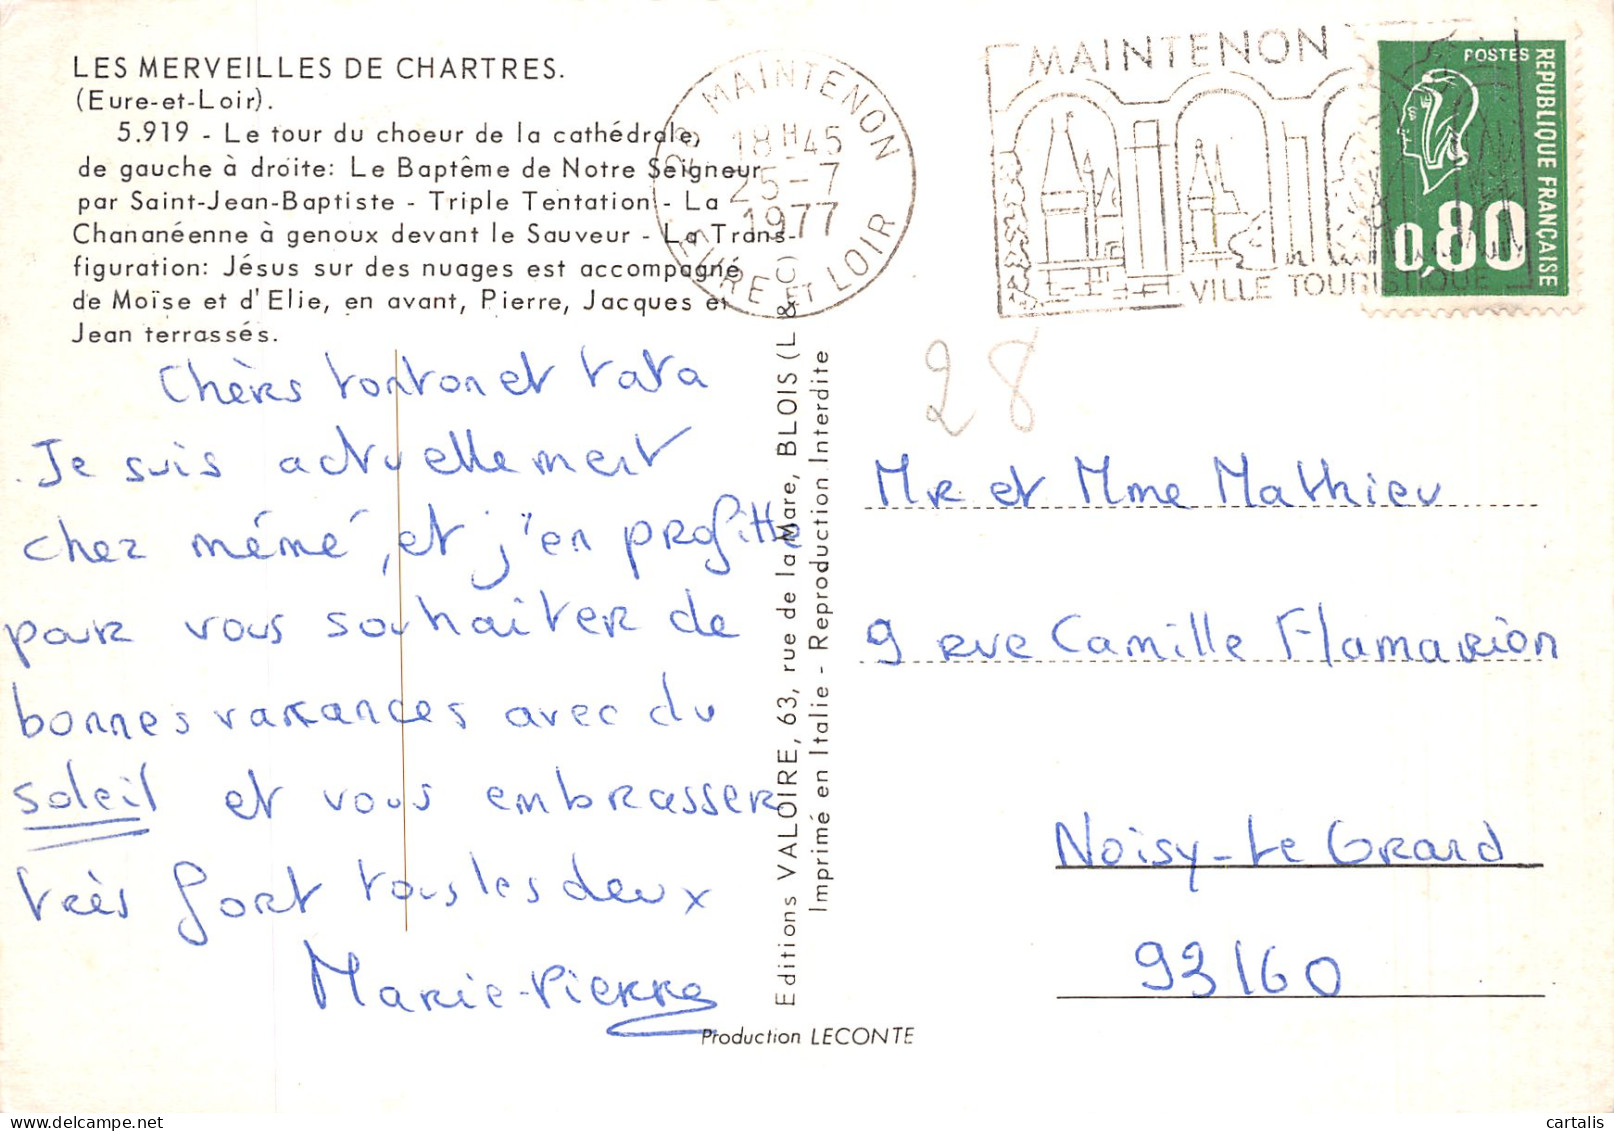 LES MERVEILLES DE CHARTRES.
(Eure-et-Loir).
5.919 - Le tour du choeur de la cathédrale,
de gauche à droite: Le Baptême de Notre Seigneur
par Saint-Jean-Baptiste - Triple Tentation - La
Chananéenne à genoux devant le Sauveur - La Trans-
figuration: Jésus sur des nuages est accompagné
de Moïse et d'Elie, en avant, Pierre, Jacques et
Jean terrassés.
Chèrs tonton et tata
Je suis actuellement
chez mémé, et j'en profitte
pour vous souhaiter de
bonnes vacances avec du
soleil et vous embrasser
très fort tous les deux
Marie-Pierre
Editions VALOIRE, 63, rue de la Mare, BLOIS (L & C)
Imprimé en Italie - Reproduction Interdite
Production LECONTE
MAINTENON
18H45
25-7
1977
EURE ET LOIR
MAINTENON
VILLE TOURISTIQUE
POSTES
REPUBLIQUE FRANÇAISE
0,80
28
Mr et Mme Mathieu
9 rue Camille Flamarion
Noisy-Le Grand
93160
cartalis